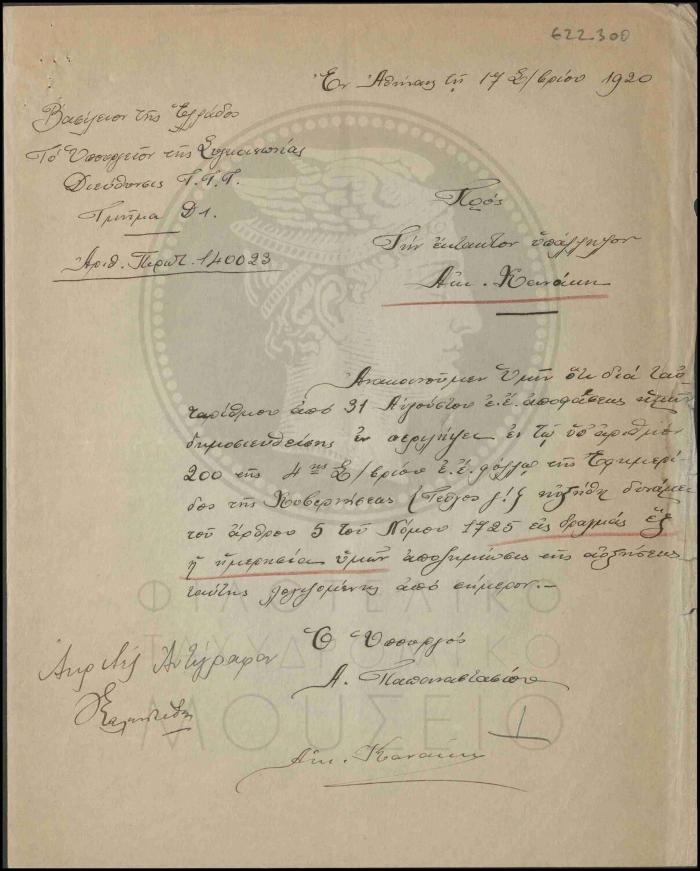 622.300
Ἐν Ἀθήναις τῇ 17 Σ/βρίου 1920
Βασίλειον τῆς Ἑλλάδος
Τὸ Ὑπουργεῖον τῆς Συγκοινωνίας
Διεύθυνσις Τ.Τ.Τ.
Τμῆμα Δ1.
Ἀριθ. Πρωτ. 140023
Πρὸς
Τὴν ἔκτακτον ὑπάλληλον
Αἰκ. Κανάκη
Ἀνακοινοῦμεν Ὑμῖν ὅτι διὰ ταὐ
ταρίθμου ἀπὸ 31 Αὐγούστου ἐ.ἔ. ἀποφάσεως ἡμῶν
δημοσιευθείσης ἐν περιλήψει ἐν τῷ ὑπ' ἀριθμὸν
200 τῆς 4ης Σ/βρίου ἐ.ἔ. φύλλῳ τῆς Ἐφημερί
δος τῆς Κυβερνήσεως (Τεῦχος γ!) ηὐξήθη δυνάμει
τοῦ ἄρθρου 5 τοῦ Νόμου 1725 εἰς δραχμάς ἕξ
ἡ ἡμερησία ὑμῶν ἀποζημίωσις τῆς αὐξήσεως
ταύτης λογιζομένης ἀπὸ σήμερον.—
Ὁ Ὑπουργός
Α. Παπαναστασίου
Ἀκριβὲς Ἀντίγραφον
Αἰκ. Κανάκη
ΦΙΛΟΤΕΛΙΚΟ
ΤΑΧΥΔΡΟΜΙΚΟ
ΜΟΥΣΕΙΟ